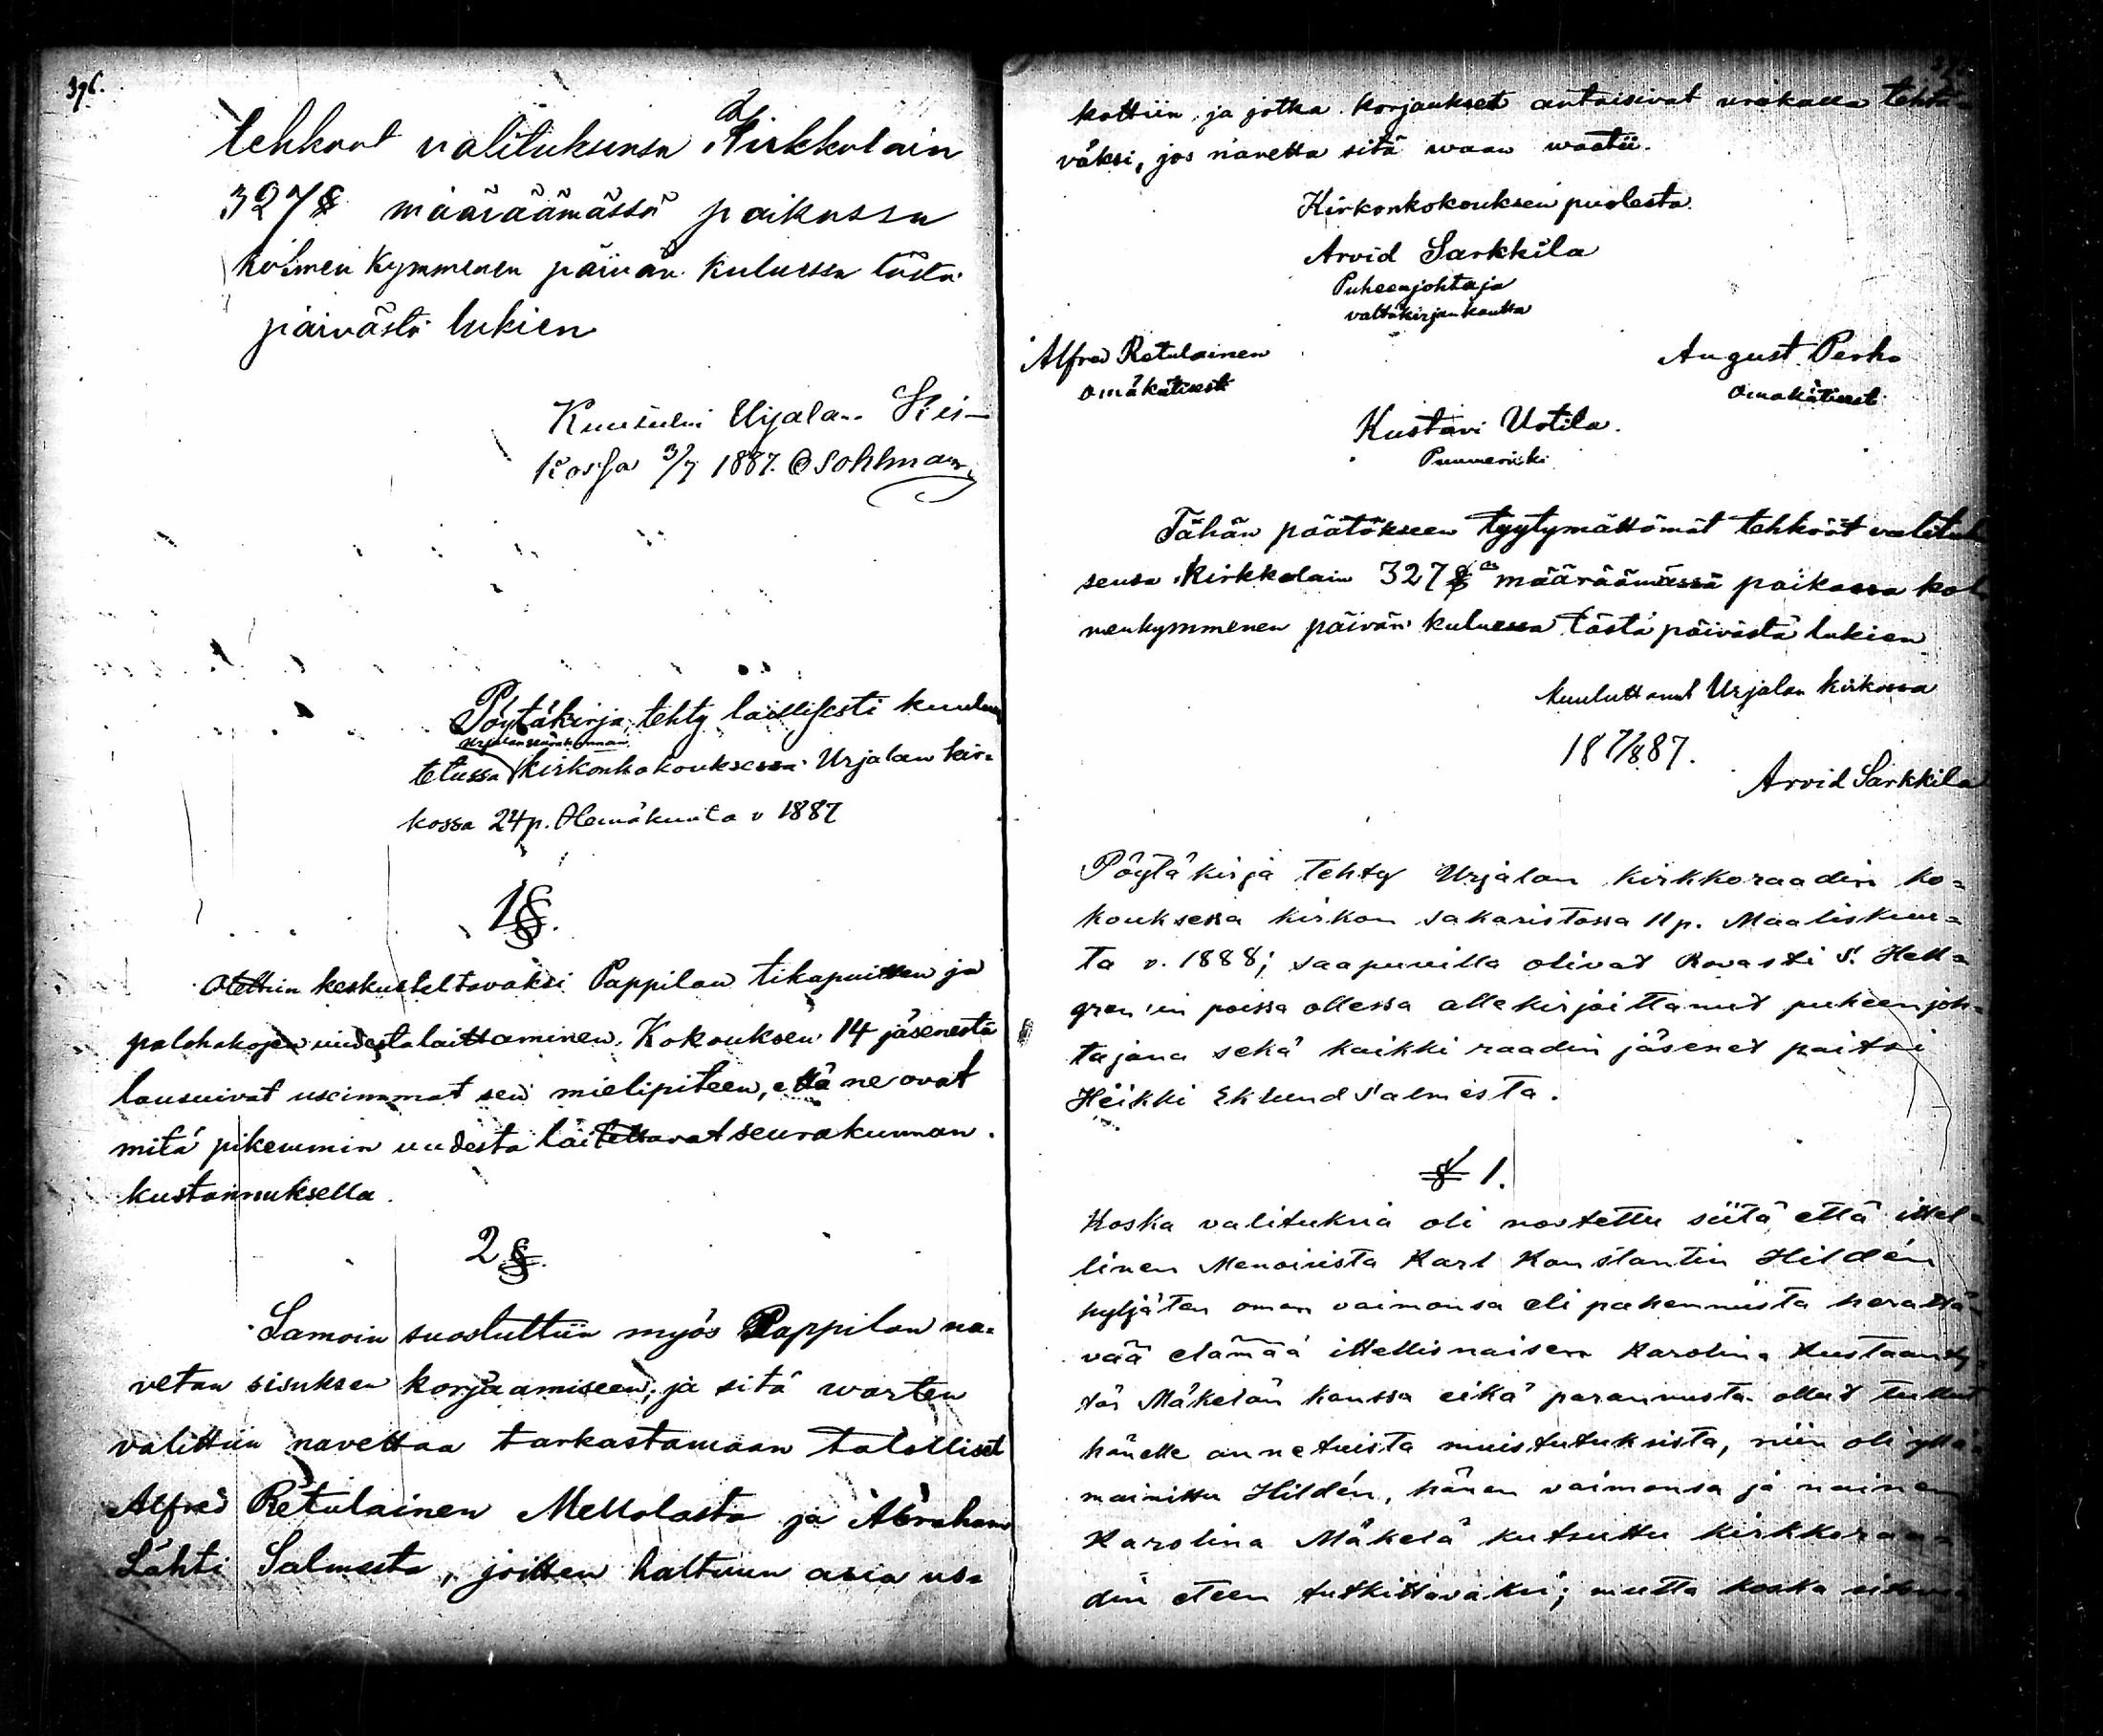 396.
tehkoot valituksensa Kirkkolain
327 § määräämässä paikassa
kolmen kymmenen päivän kuluessa tästä
päivästä lukien
Kuulutettu Urjalan Kir-
kossa 3/7 1887. O Sohlman
Pöytäkirja, tehty laillisesti kuulu
Urjalan seurakunnan
tetussa kirkonkokouksessa Urjalan kir-
kossa 24 p. Heinäkuuta v 1887
1 §.
Otettiin keskusteltavaksi Pappilan tikapuitten ja
palohakojen uudestalaittaminen. Kokouksen 14 jäsenestä
lausuivat useimmat sen mielipiteen, että ne ovat
mitä pikemmin uudesta laitettavat seurakunnan
kustannuksella.
2 §.
Samoin suostuttiin myös Pappilan na-
vetan sisuksen korjaamiseen, ja sitä warten
valittiin navettaa tarkastamaan talolliset
Alfred Retulainen Mellolasta ja Abraham
Lähti Salmesta, joitten haltuun asia us-
kottiin ja jotka korjaukset antaisivat urakalla tehtä-
väksi, jos navetta sitä waan waatii.
Kirkonkokouksen puolesta
Arvid Sarkkila
Puheenjohtaja
valtakirjan kautta
Alfred Retulainen
omakätisesti
August Perho
Omakätisesti
Kustavi Uotila.
Puumerkki
Tähän päätökseen tyytymättömät tehkööt valituk
sensa Kirkkolain 327 § määräämässä paikassa kol
menkymmenen päivän kuluessa tästä päivästä lukien
kuuluttanut Urjalan kirkossa
18 7/8 87.
Arvid Sarkkila
Pöytäkirja tehty Urjalan kirkkoraadin ko-
kouksessa kirkon sakaristossa 11 p. Maaliskuu-
ta v. 1888; saapuvilla olivat Rovasti S. Hell-
gren'in poissa ollessa allekirjoittanut puheenjoh-
tajana sekä kaikki raadin jäsenet paitsi
Heikki Eklund Salmesta.
§ 1.
Koska valituksia oli nostettu siitä että ittel-
linen Menoisista Karl Konstantin Hildén
hyljäten oman vaimonsa eli pahennusta herättä-
vää elämää itellisnaisen Karolina Kustaanty-
tär Mäkelän kanssa eikä parannusta ollut tullut
hänelle annetuista muistutuksista, niin oli yllä-
mainittu Hildén, hänen vaimonsa ja nainen
Karolina Mäkelä kutsuttu kirkkoraa-
din eteen tutkittavaksi; mutta koska